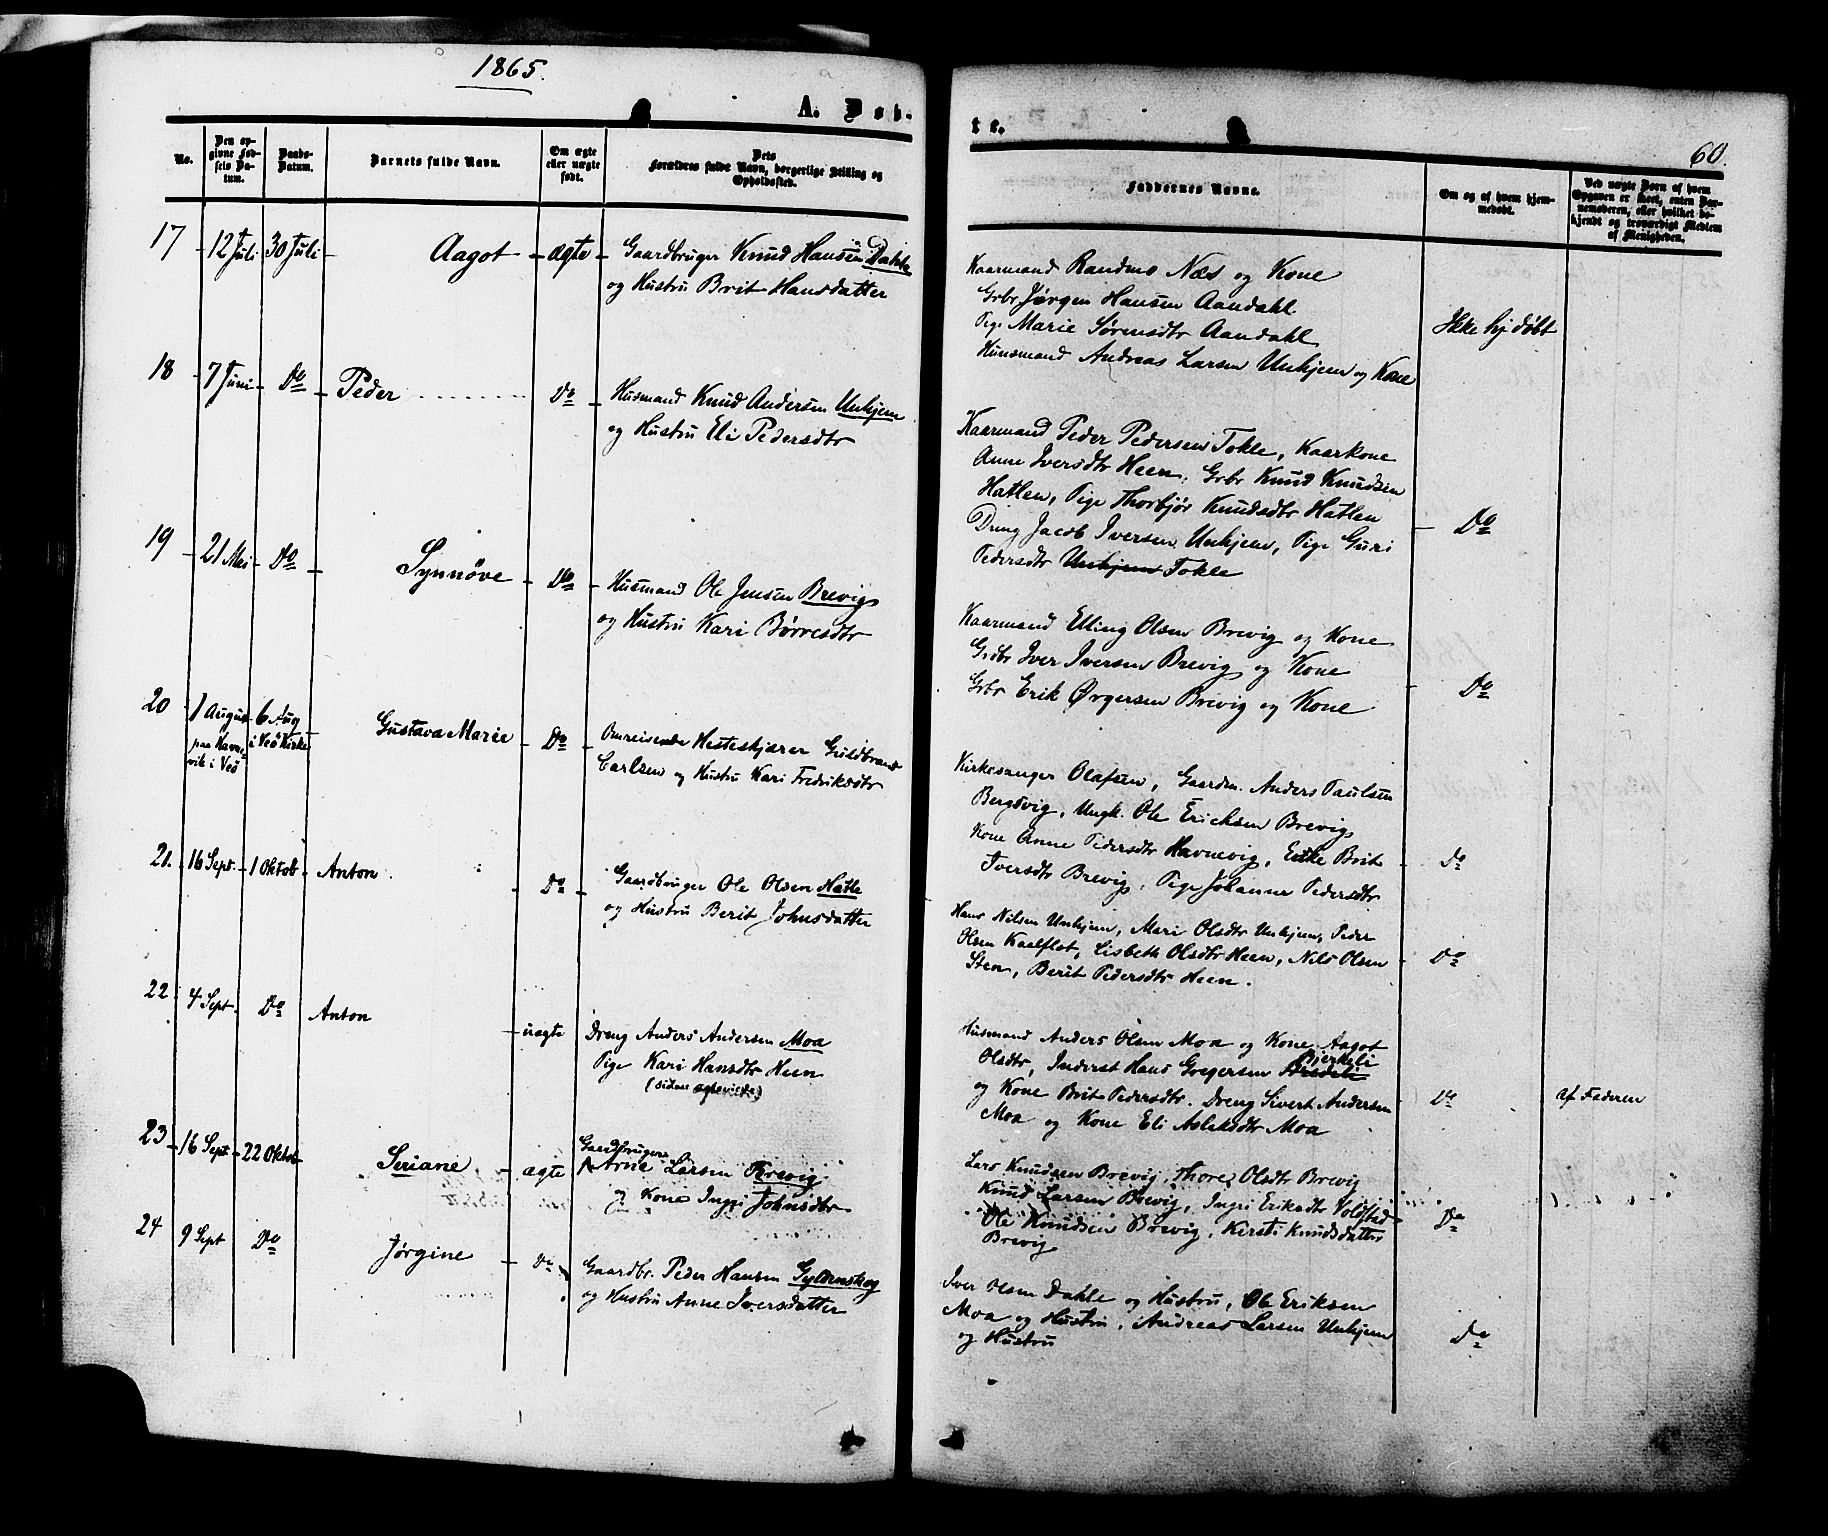 1865.
A. Døb-
te.
60.
No.
Den opgivne Fødsels Datum.
Daabs-Datum.
Barnets fulde Navn.
Om ægte eller uægte født.
Dets Forældres fulde Navn, borgerlige Stilling og Opholdssted.
Faddernes Navne.
Om og af hvem hjemmedøbt.
Ved uægte Børn af hvem Opgaven er skeet, enten Barnemoderen, eller hvilket bekjendt og troværdigt Medlem af Menigheden.
17 12 Juli 30 Juli Aagot ægte Gaardbruger Knud Hansen Dahle
og Hustru Brit Hansdatter
Kaarmand Randmo Næs og Kone
Grbr Jørgen Hansen Aandahl
Pige Marie Sørensdtr Aandahl
Husmand Andreas Larsen Unhjem og Kone
Ikke hj døbt
18 7 Juni Do Peder Do Husmand Knud Andersen Unhjem
og Hustru Eli Pedersdtr
Kaarmand Peder Pedersen Tokle, Kaarkone
Anne Iversdtr Heen, Grbr Knud Knudsen
Hatlen, Pige Thorbjør Knudsdtr Hatlen
Dreng Jacob Iversen Unhjem, Pige Guri
Pedersdtr Unhjem Tokle
Do
19 21 Mai Do Synnøve Do Husmand Ole Jensen Brevig
og Hustru Kari Børresdtr
Kaarmand Elling Olsen Brevig og Kone
Grdbr Iver Iversen Brevig og Kone
Grbr Erik Ørgersen Brevig og Kone
Do
20 1 August 6 Aug Gustava Marie Do Omreisende Hesteskjærer Guldbrand
paa Havnevik i Veö i Veö Kirke
Carlsen og Hustru Kari Fredriksdtr
Kirkesanger Olafsen, Gaardm. Anders Paulsen
Bergsvig, Ungk. Ole Ericksen Brevig
Kone Anne Pedersdtr Havnevig, Enke Brit
Iversdtr Brevig, Pige Johanne Pedersdtr
Do
21. 16 Sept. 1 Oktob Anton Do Gaardbruger Ole Olsen Hatle
og Hustru Berit Johnsdatter
Hans Nilsen Unhjem, Mari Olsdtr Unhjem, Peder
Olsen Kaalflot, Lisbeth Olsdtr Heen, Nils Olsen
Sten, Berit Pedersdtr Heen.
Do
22 4 Sept Do Anton uægte Dreng Anders Andersen Moa
Pige Kari Hansdtr Heen
(siden ægteviede)
Husmand Anders Olsen Moa og Kone Aagot
Bjerkeli
Olsdtr, Inderst Hans Gregersen
og Kone Brit Pedersdtr. Dreng Sivert Andersen
Moa og Kone Eli Aslaksdtr Moa
Do af Faderen
23 16 Sept 22 Oktob Seriane ægte Gaardbruger
Arne Larsen Brevig
og Kone Ingri Johnsdtr
Lars Knudsen Brevig, Thore Olsdtr Brevig
Knud Larsen Brevig, Ingri Eriksdtr Voldstad
Ole Knudsen Brevig, Kersti Knudsdatter
Brevig
Do
24 9 Sept Do Jørgine Do Gaardbr. Peder Hansen Gyldenskog
og Hustru Anne Iversdatter
Iver Olsen Dahle og Hustru, Ole Eriksen
Moa og Hustru, Andreas Larsen Unhjem
og Hustru
Do